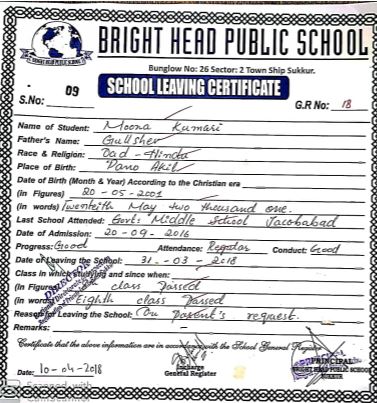 BRIGHT HEAD PUBLIC SCHOOL
Bunglow No: 26 Sector: 2 Town Ship Sukkur.
SCHOOL LEAVING CERTIFICATE
S.No: 09 G.R No: 18
Name of Student: Moona Kumari
Father's Name: Gullsher
Race & Religion: Dad - Hindu
Place of Birth: Pano Akil
Date of Birth (Month & Year) According to the Christian era
(in Figures) 20-05-2001
(in words) Twenteith May two thousand one.
Last School Attended: Govt: Middle School Jacobabad
Date of Admission: 20-09-2016
Progress: Good Attendance: Regular Conduct: Good
Date of Leaving the School: 31-03-2018
Class in which studying and since when:
(In Figures) class Passed
(In words) Eighth class Passed
Reason for Leaving the School: On Parent's request.
Remarks: –
Certificate that the above information are in accordance with the School General Register
Date: 10-04-2018
Incharge
General Register
PRINCIPAL
BRIGHT HEAD PUBLIC SCHOOL
SUKKUR